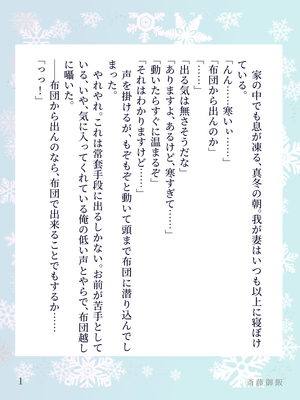 家の中でも息が凍る、真冬の朝。我が妻はいつも以上に寝ぼけ
ている。
「んん……寒いぃ……」
「布団から出んのか」
「……」
「出る気は無さそうだな」
「ありますよ、あるけど、寒すぎて……」
「動いたらすぐに温まるぞ」
「それはわかりますけど……」
声を掛けるが、もぞもぞと動いて頭まで布団に潜り込んでし
まった。
やれやれ。これは常套手段に出るしかない。お前が苦手として
いる、いや、気に入ってくれている俺の低い声とやらで、布団越し
に囁いた。
――布団から出んのなら、布団で出来ることでもするか……
「っっ！」
1
斎藤御飯